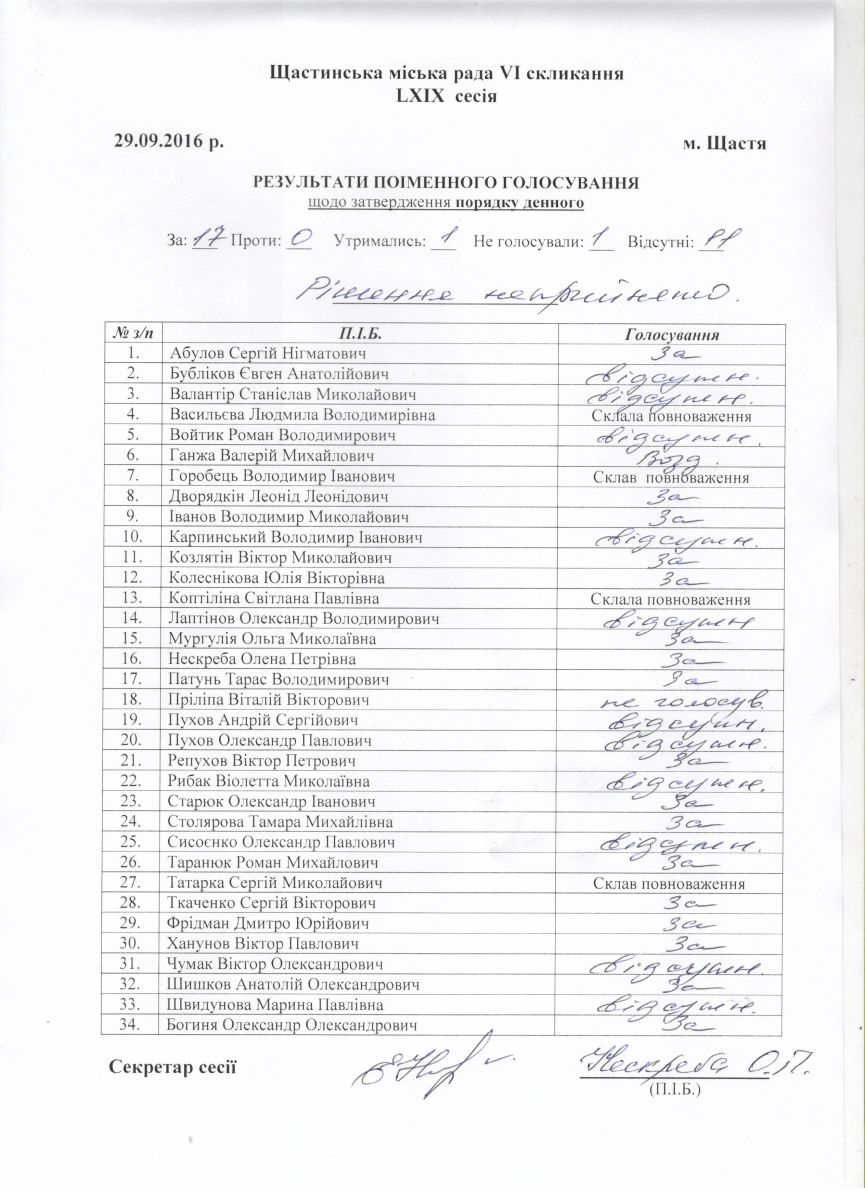 Щастинська міська рада VI скликання
LXIX сесія
29.09.2016 р. м. Щастя
РЕЗУЛЬТАТИ ПОІМЕННОГО ГОЛОСУВАННЯ
щодо затвердження порядку денного
За: 17 Проти: 0 Утримались: 1 Не голосували: 1 Відсутні: 11
Рішення неприйнято.
№ з/п П.І.Б. Голосування
1. Абулов Сергій Нігматович За
2. Бубліков Євген Анатолійович відсутн.
3. Валантір Станіслав Миколайович відсутн.
4. Васильєва Людмила Володимирівна Склала повноваження
5. Войтик Роман Володимирович відсутн.
6. Ганжа Валерій Михайлович Возд.
7. Горобець Володимир Іванович Склав повноваження
8. Дворядкін Леонід Леонідович За
9. Іванов Володимир Миколайович За
10. Карпинський Володимир Іванович відсутн.
11. Козлятін Віктор Миколайович За
12. Колеснікова Юлія Вікторівна За
13. Коптіліна Світлана Павлівна Склала повноваження
14. Лаптінов Олександр Володимирович відсутн
15. Мургулія Ольга Миколаївна За
16. Нескреба Олена Петрівна За
17. Патунь Тарас Володимирович За
18. Пріліпа Віталій Вікторович не голосув.
19. Пухов Андрій Сергійович відсутн.
20. Пухов Олександр Павлович відсутн.
21. Репухов Віктор Петрович За
22. Рибак Віолетта Миколаївна відсутн.
23. Старюк Олександр Іванович За
24. Столярова Тамара Михайлівна За
25. Сисоєнко Олександр Павлович відсутн.
26. Таранюк Роман Михайлович За
27. Татарка Сергій Миколайович Склав повноваження
28. Ткаченко Сергій Вікторович За
29. Фрідман Дмитро Юрійович За
30. Ханунов Віктор Павлович За
31. Чумак Віктор Олександрович відсутн.
32. Шишков Анатолій Олександрович За
33. Швидунова Марина Павлівна відсутн.
34. Богиня Олександр Олександрович За
Секретар сесії Нескреба О.П.
(П.І.Б.)